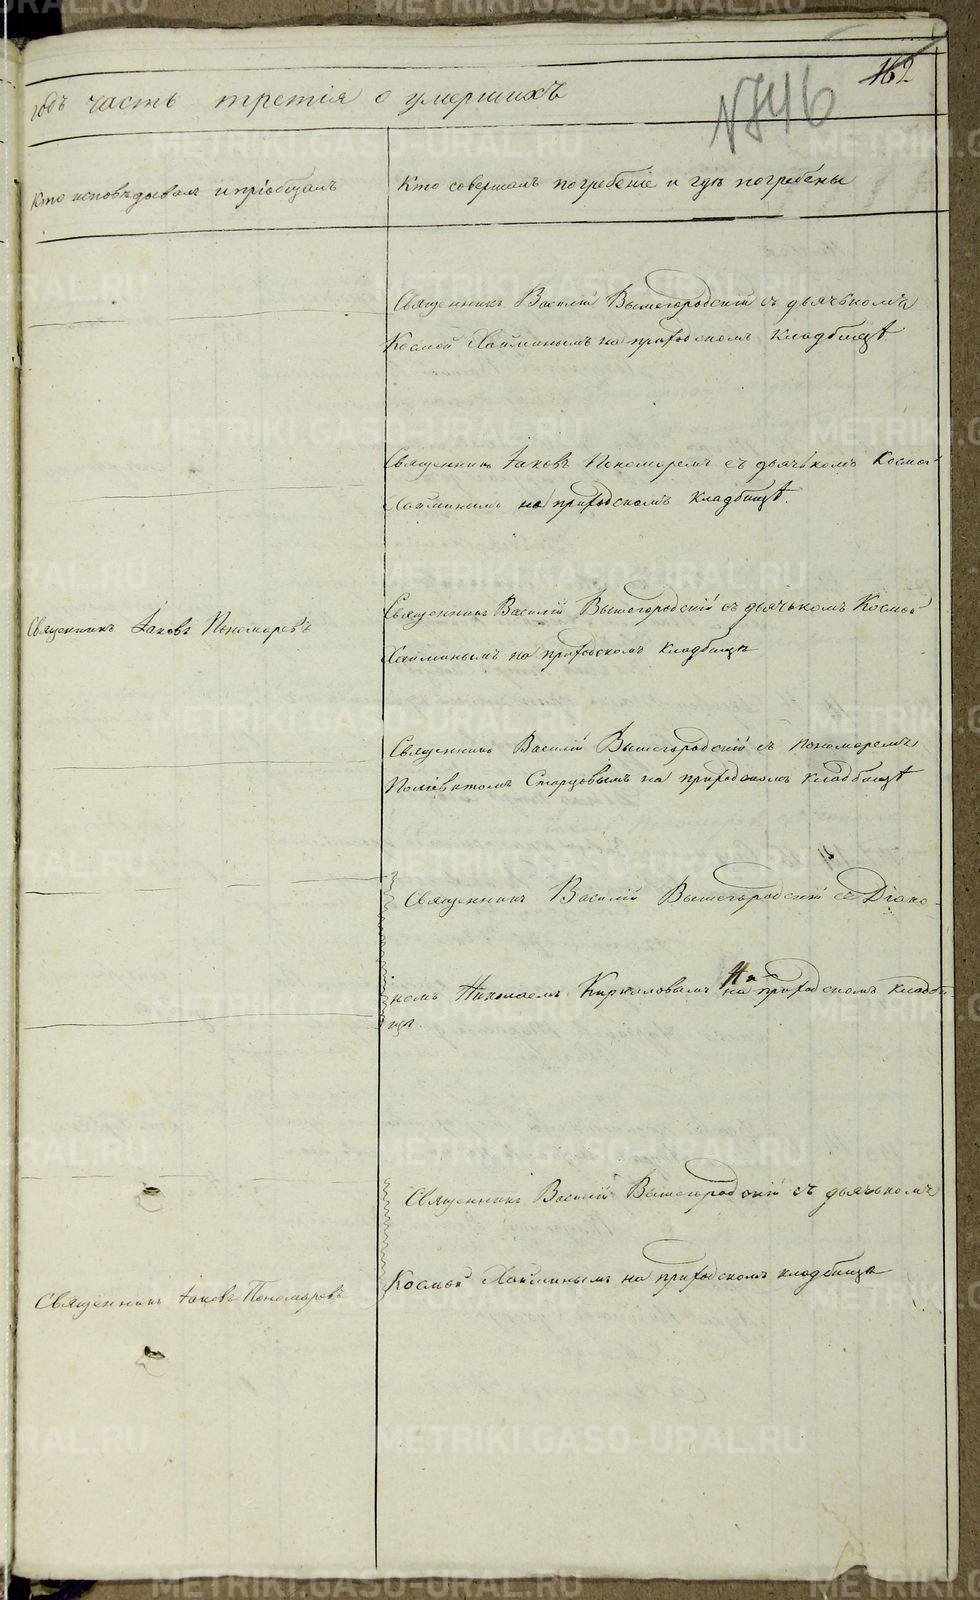 162
№746
годъ часть третія о умершихъ
Кто исповѣдывалъ и пріобщалъ
Кто совершалъ погребеніе и гдѣ погребены
Священникъ Василій Вышегородскій съ дьячькомъ
Космой Хайминымъ на приходскомъ кладбищѣ
Священникъ Іаковъ Пономаревъ съ дьячькомъ Космой
Хайминымъ на приходскомъ кладбищѣ.
Священникъ Іаковъ Пономаревъ
Священникъ Василій Вышегородскій съ дьячькомъ Космой
Хайминымъ на приходскомъ кладбищѣ
Священникъ Василій Вышегородскій съ пономаремъ
Поліевктомъ Старцовымъ на приходскомъ кладбищѣ
Священникъ Василій Вышегородскій съ Діако-
номъ Николаемъ Кириловымъ на приходскомъ кладби
щѣ.
Священникъ Василій Вышегородскій съ дьячькомъ
Космой Хайминымъ на приходскомъ кладбищѣ
Священникъ Іаковъ Пономаревъ
METRIKI.GASO-URAL.RU